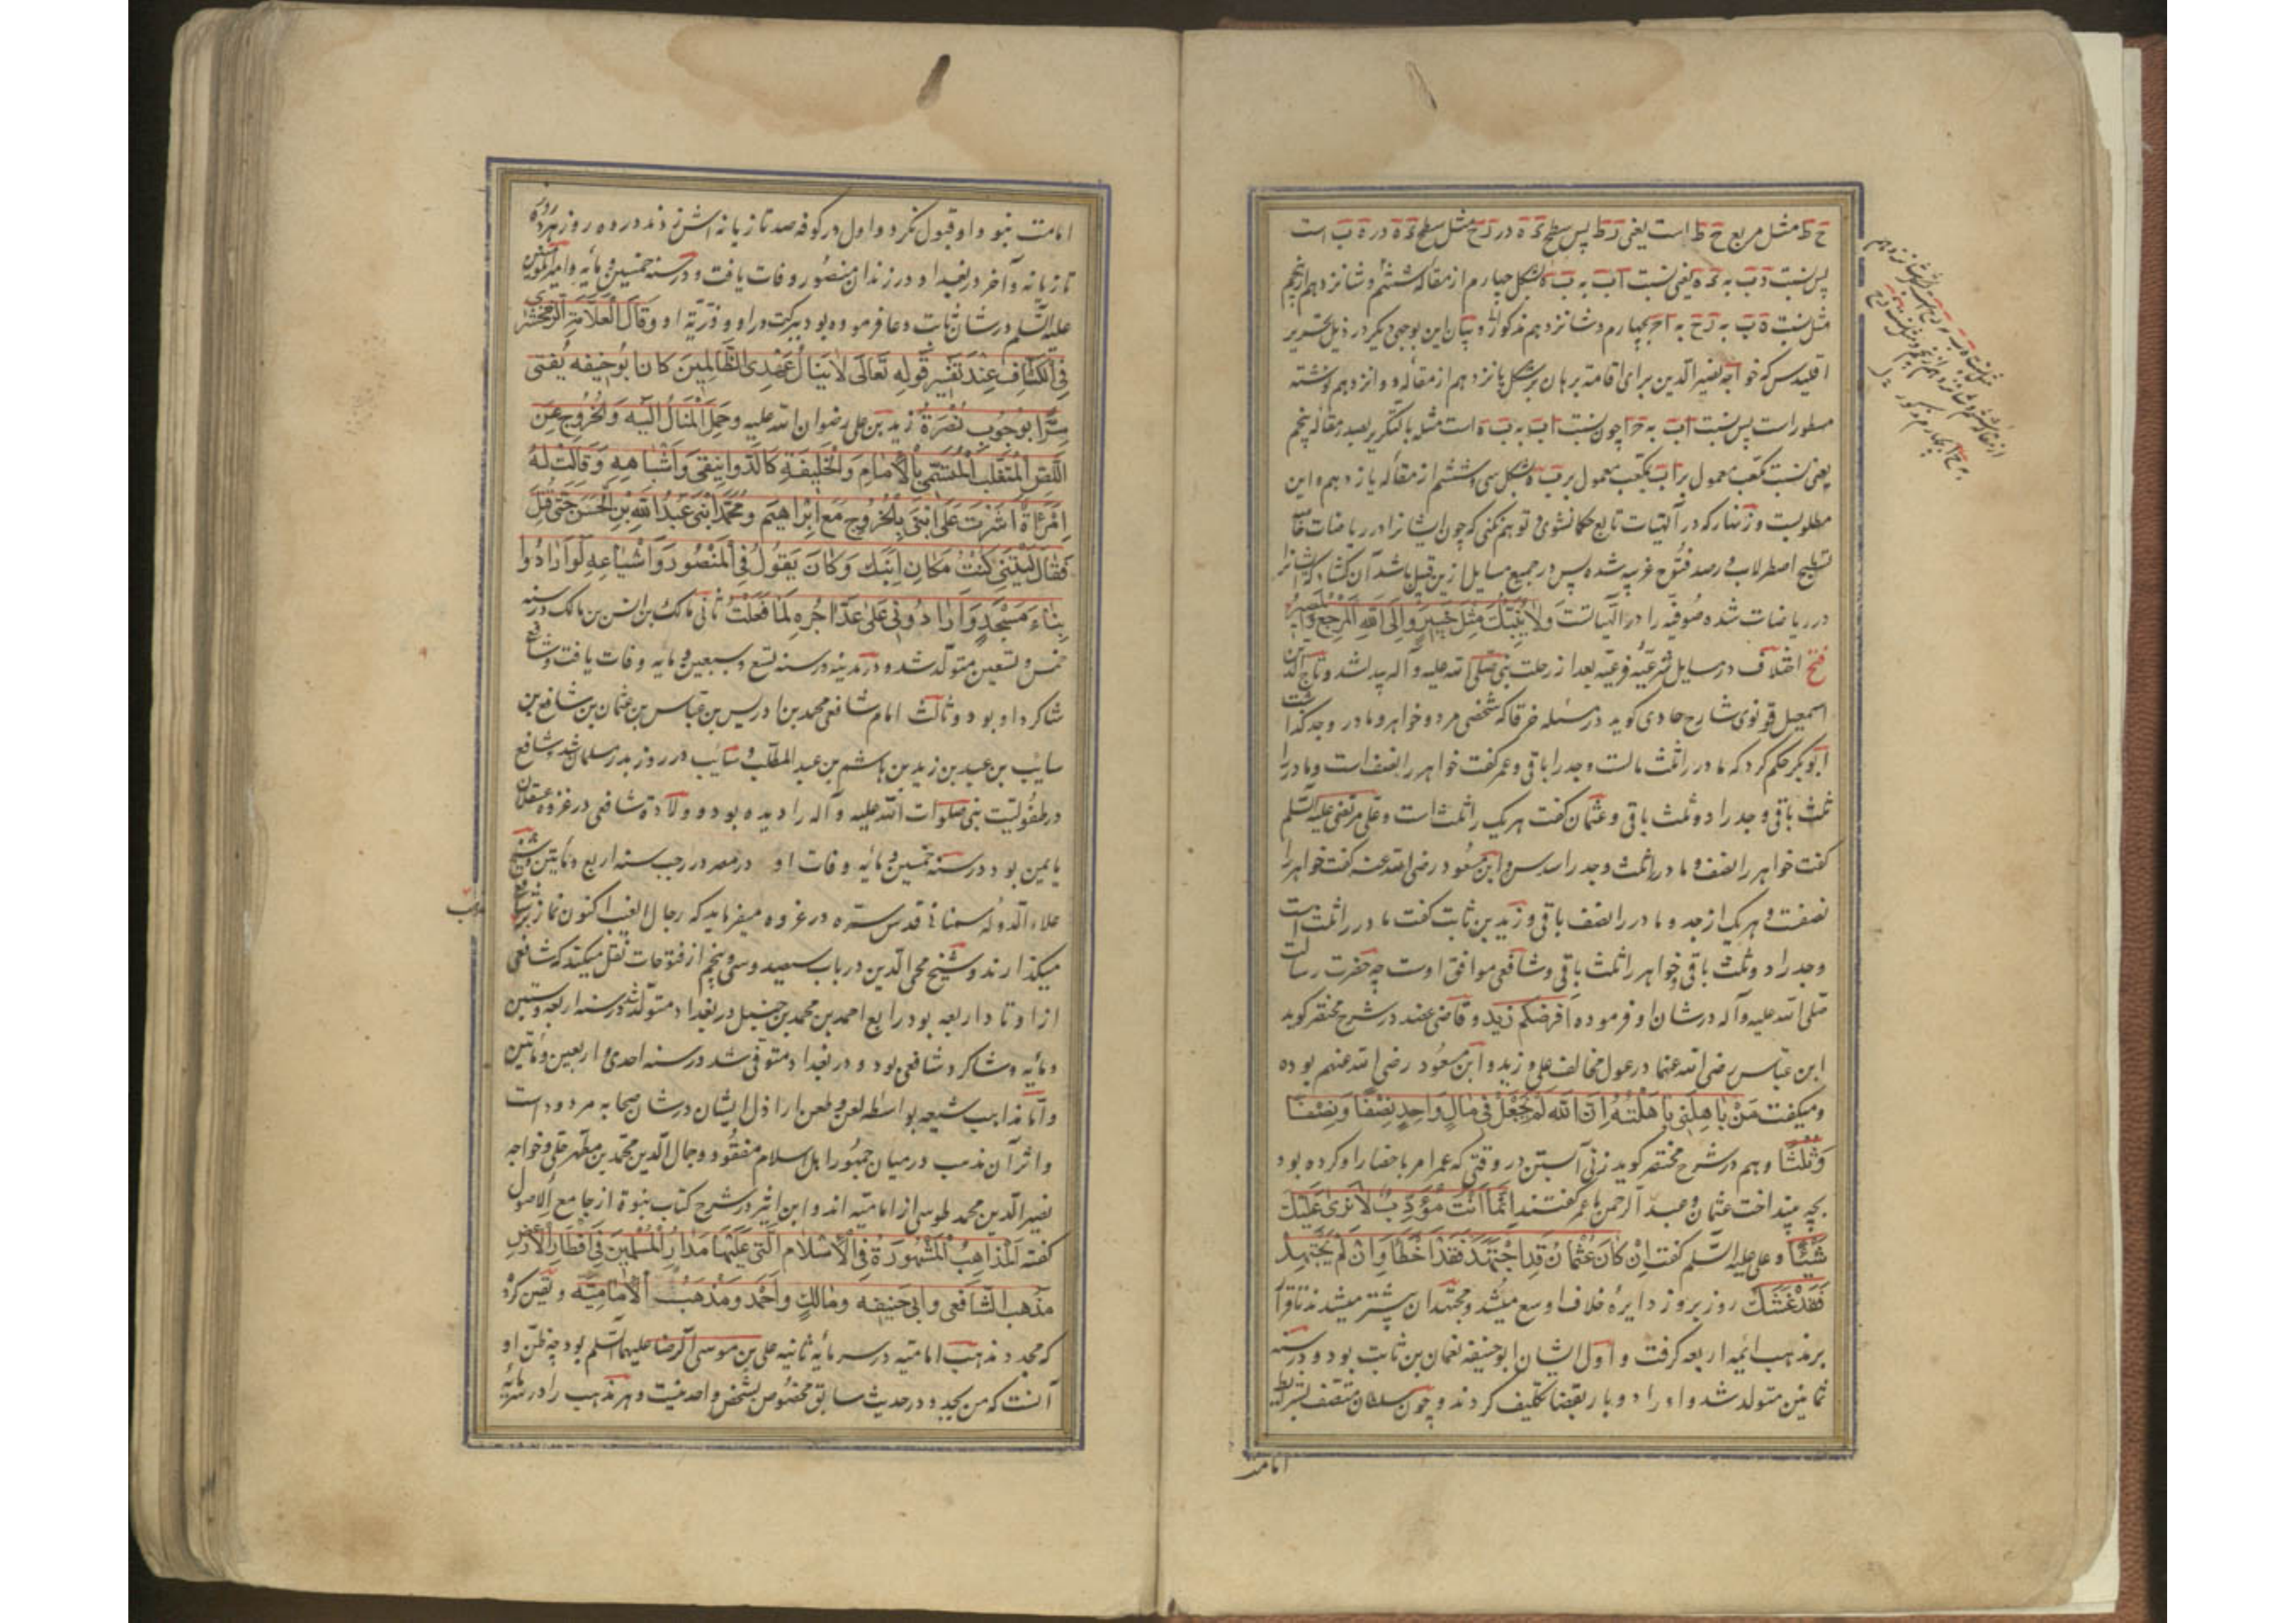 ح ط مثل مربع ح ط است یعنی ر ط پس سطح ء ه در ر ح مثل سطح ء ه در ه ب است
پس نسبت د ب به ء ه یعنی نسبت اب به ب ه بشکل چهارم از مقاله ششم و شانزدهم از پنجم
مثل نسبت ه ب به ر ح به ا ح بچهارم و شانزدهم مذکور و بیان این بوجهی دیگر در ذیل تحریر
اقلیدس که خواجه نصیر الدین برای اقامة برهان بر شکل پانزدهم از مقاله دوازدهم نوشته
مسطور است پس نسبت اب به ح ا چون نسبت اب به ب ه است مثله بالتکریر بصدر مقاله پنجم
یعنی نسبت مکعب معمول بر اب بمکعب معمول بر ب ه بشکل سی و ششم از مقاله یازدهم و این
مطلوبست و زنهار که در آلهیات تابع حکما نشوی و توهم نکنی که چون ایشانرا در ریاضات خاصه
تسطیح اصطرلاب و رصد فتوح غریبه شده پس در جمیع مسایل ازین قبیل باشد آن کشاد که ایشانرا
در ریاضات شده صوفیه را در آلهیاتست وَلا یُنَبِّئُكَ مِثلُ خَبیرٍ وَاِلَی اللّهِ المَرجِعُ وَالمَصیرُ
فتح اختلاف در مسایل شرعیه فرعیه بعد از رحلت نبی صلی الله علیه و آله پیدا شد و تاج الدین
اسمعیل قونوی شارح حاوی کوید در مسئله خرقا که شخصی مرد و خواهر و مادر و جد کذاشت
ابوبکر حکم کرد که مادر را ثلث مالست و جد را باقی و عمر کفت خواهر را نصف است و مادر را
ثلث باقی و جد را دو ثلث باقی و عثمان کفت هر یک را ثلث است و علی مرتضی علیه السلم
کفت خواهر را نصف و مادر را ثلث و جد را سدس و ابن مسعود رضی الله عنه کفت خواهر را
نصفست و هر یک از جد و مادر را نصف باقی و زید بن ثابت کفت مادر را ثلث است
و جد را دو ثلث باقی و خواهر را ثلث باقی و شافعی موافق اوست چه حضرت رسالت
صلی الله علیه و آله در شان او فرموده اَفرَضُکُم زَید و قاضی عضد در شرح مختصر کوید
ابن عباس رضی الله عنهما در عول مخالف علی و زید و ابن مسعود رضی الله عنهم بوده
و میکفت مَنْ باهَلَنی باهَلْتُهُ اِنَّ اللّهَ لَمْ یَجْعَلْ فی مالٍ واحِدٍ نِصْفًا وَنِصْفًا
وَثُلُثًا و هم در شرح مختصر کوید زنی آبستن در وقتی که عمر امر باحضار او کرده بود
بچه بینداخت عثمان و عبد الرحمن با عمر کفتند اِنَّما اَنْتَ مُؤَدِّبٌ لا نَری عَلَیْكَ
شَیْئًا و علی علیه السلم کفت اِنْ کانَ عُثْمانُ قَدِ اجْتَهَدَ فَقَدْ اَخْطَأَ وَاِنْ لَمْ یَجْتَهِدْ
فَقَدْ غَشَّكَ روز بروز دایره خلاف اوسع میشد و مجتهدان بیشتر میشدند تا قرار
بر مذهب ائمه اربعه کرفت و اول ایشان ابو حنیفه نعمان بن ثابت بود و در سنه
ثمانین متولد شد و او را دو بار بقضا تکلیف کردند و چون سلطان متصف بشرایط
امامت
امامت نبود او قبول نکرد و اول در کوفه صد تازیانه اش زدند در ده روز هر روز ده
تازیانه و آخر در بغداد در زندان منصور وفات یافت و در سنه خمسین و مائه و امیر المومنین
علیه السلم در شان ثابت دعا فرموده بود ببرکت در او و ذریة او وَقالَ العَلّامَة الزَمَخشَری
فِی الکَشّافِ عِنْدَ تَفْسیرِ قَولِهِ تَعالی لا یَنالُ عَهْدِی الظّالِمینَ کانَ ابُو حنیفه یُفتی
سِرًّا بِوُجُوبِ نُصْرَةِ زید بن علی رضوان الله علیه وَحَملِ المالِ اِلَیهِ وَالخُرُوجِ عَن
اللِّصِّ المُتَغَلِّبِ المُتَسَمّی بِالاِمامِ وَالخَلیفَةِ کَالدَوانِیقیِّ وَاَشْباهِهِ وَقالَتْ لَهُ
اِمْرَأَةٌ اَشَرْتَ عَلَی ابْنی بِالخُرُوجِ مَعَ اِبْراهیم وَمُحَمَّد ابْنَی عَبْدِ اللّهِ بْنِ الحَسَنِ حَتّی قُتِلَ
فَقالَ لَیْتَنی کُنْتُ مَکانَ اِبْنِكِ وَکانَ یَقُولُ فِی المَنْصُورِ وَاَشْیاعِهِ لَو اَرادُوا
بِناءَ مَسْجِدٍ وَاَرادُونی عَلی عَدِّ آجُرِهِ لَما فَعَلْتُ ثانی مالک بن انس بن مالک در سنه
خمس و تسعین متولد شد و در مدینه در سنه تسع و سبعین و مایه وفات یافت و شافعی
شاکرد او بود و ثالث امام شافعی محمد بن ادریس بن عباس بن عثمان بن شافع بن
سایب بن عبید بن زید بن هاشم بن عبد المطلب و سایب در روز بدر مسلمان شد و شافع
در طفولیت نبی صلوات الله علیه و آله را دیده بود و ولادة شافعی در غزوه عسقلان
یا یمن بود در سنه خمسین و مائه و فات او در مصر در رجب سنه اربع و مایتین و شیخ
علاء الدوله سمنانی قدس سره در عروه میفرماید که رجال الغیب اکنون نماز بر مذهب شافعی
میکذارند و شیخ محیی الدین در باب سیصد و سی و پنجم از فتوحات نقل میکند که شافعی
از اوتاد اربعه بود رابع احمد بن محمد بن حنبل در بغداد متولد شد در سنه اربعه و ستین
و مایه و شاکرد شافعی بود و در بغداد متوفی شد در سنه احدی و اربعین و مأتین
و اما مذاهب شیعه بواسطه لعن و طعن اراذل ایشان در شان صحابه مردود است
و اثر آن مذهب در میان جمهور اهل اسلام مفقود و جمال الدین محمد بن مطهر حلی و خواجه
نصیر الدین محمد طوسی از امامیه اند و ابن اثیر در شرح کتاب نبوة از جامع الاصول
کفته اَلْمَذاهِبُ المَشْهُورَةُ فِی الاِسْلامِ الَّتی عَلَیْها مَدارُ المُسْلِمینَ فی اَقْطارِ الاَرْضِ
مَذْهَبُ الشّافِعی وَاَبی حَنیفَه وَمالِكٍ وَاَحْمَد وَمَذْهَبُ الاِمامِیَّه و یقین کرد
که مجدد مذهب امامیه در سر مایه ثانیه علی بن موسی الرضا علیهما السلم بود چه ظن او
آنست که من یجدد در حدیث سابق مخصوص بشخص واحد نیست و هر مذهب را در سر مایه